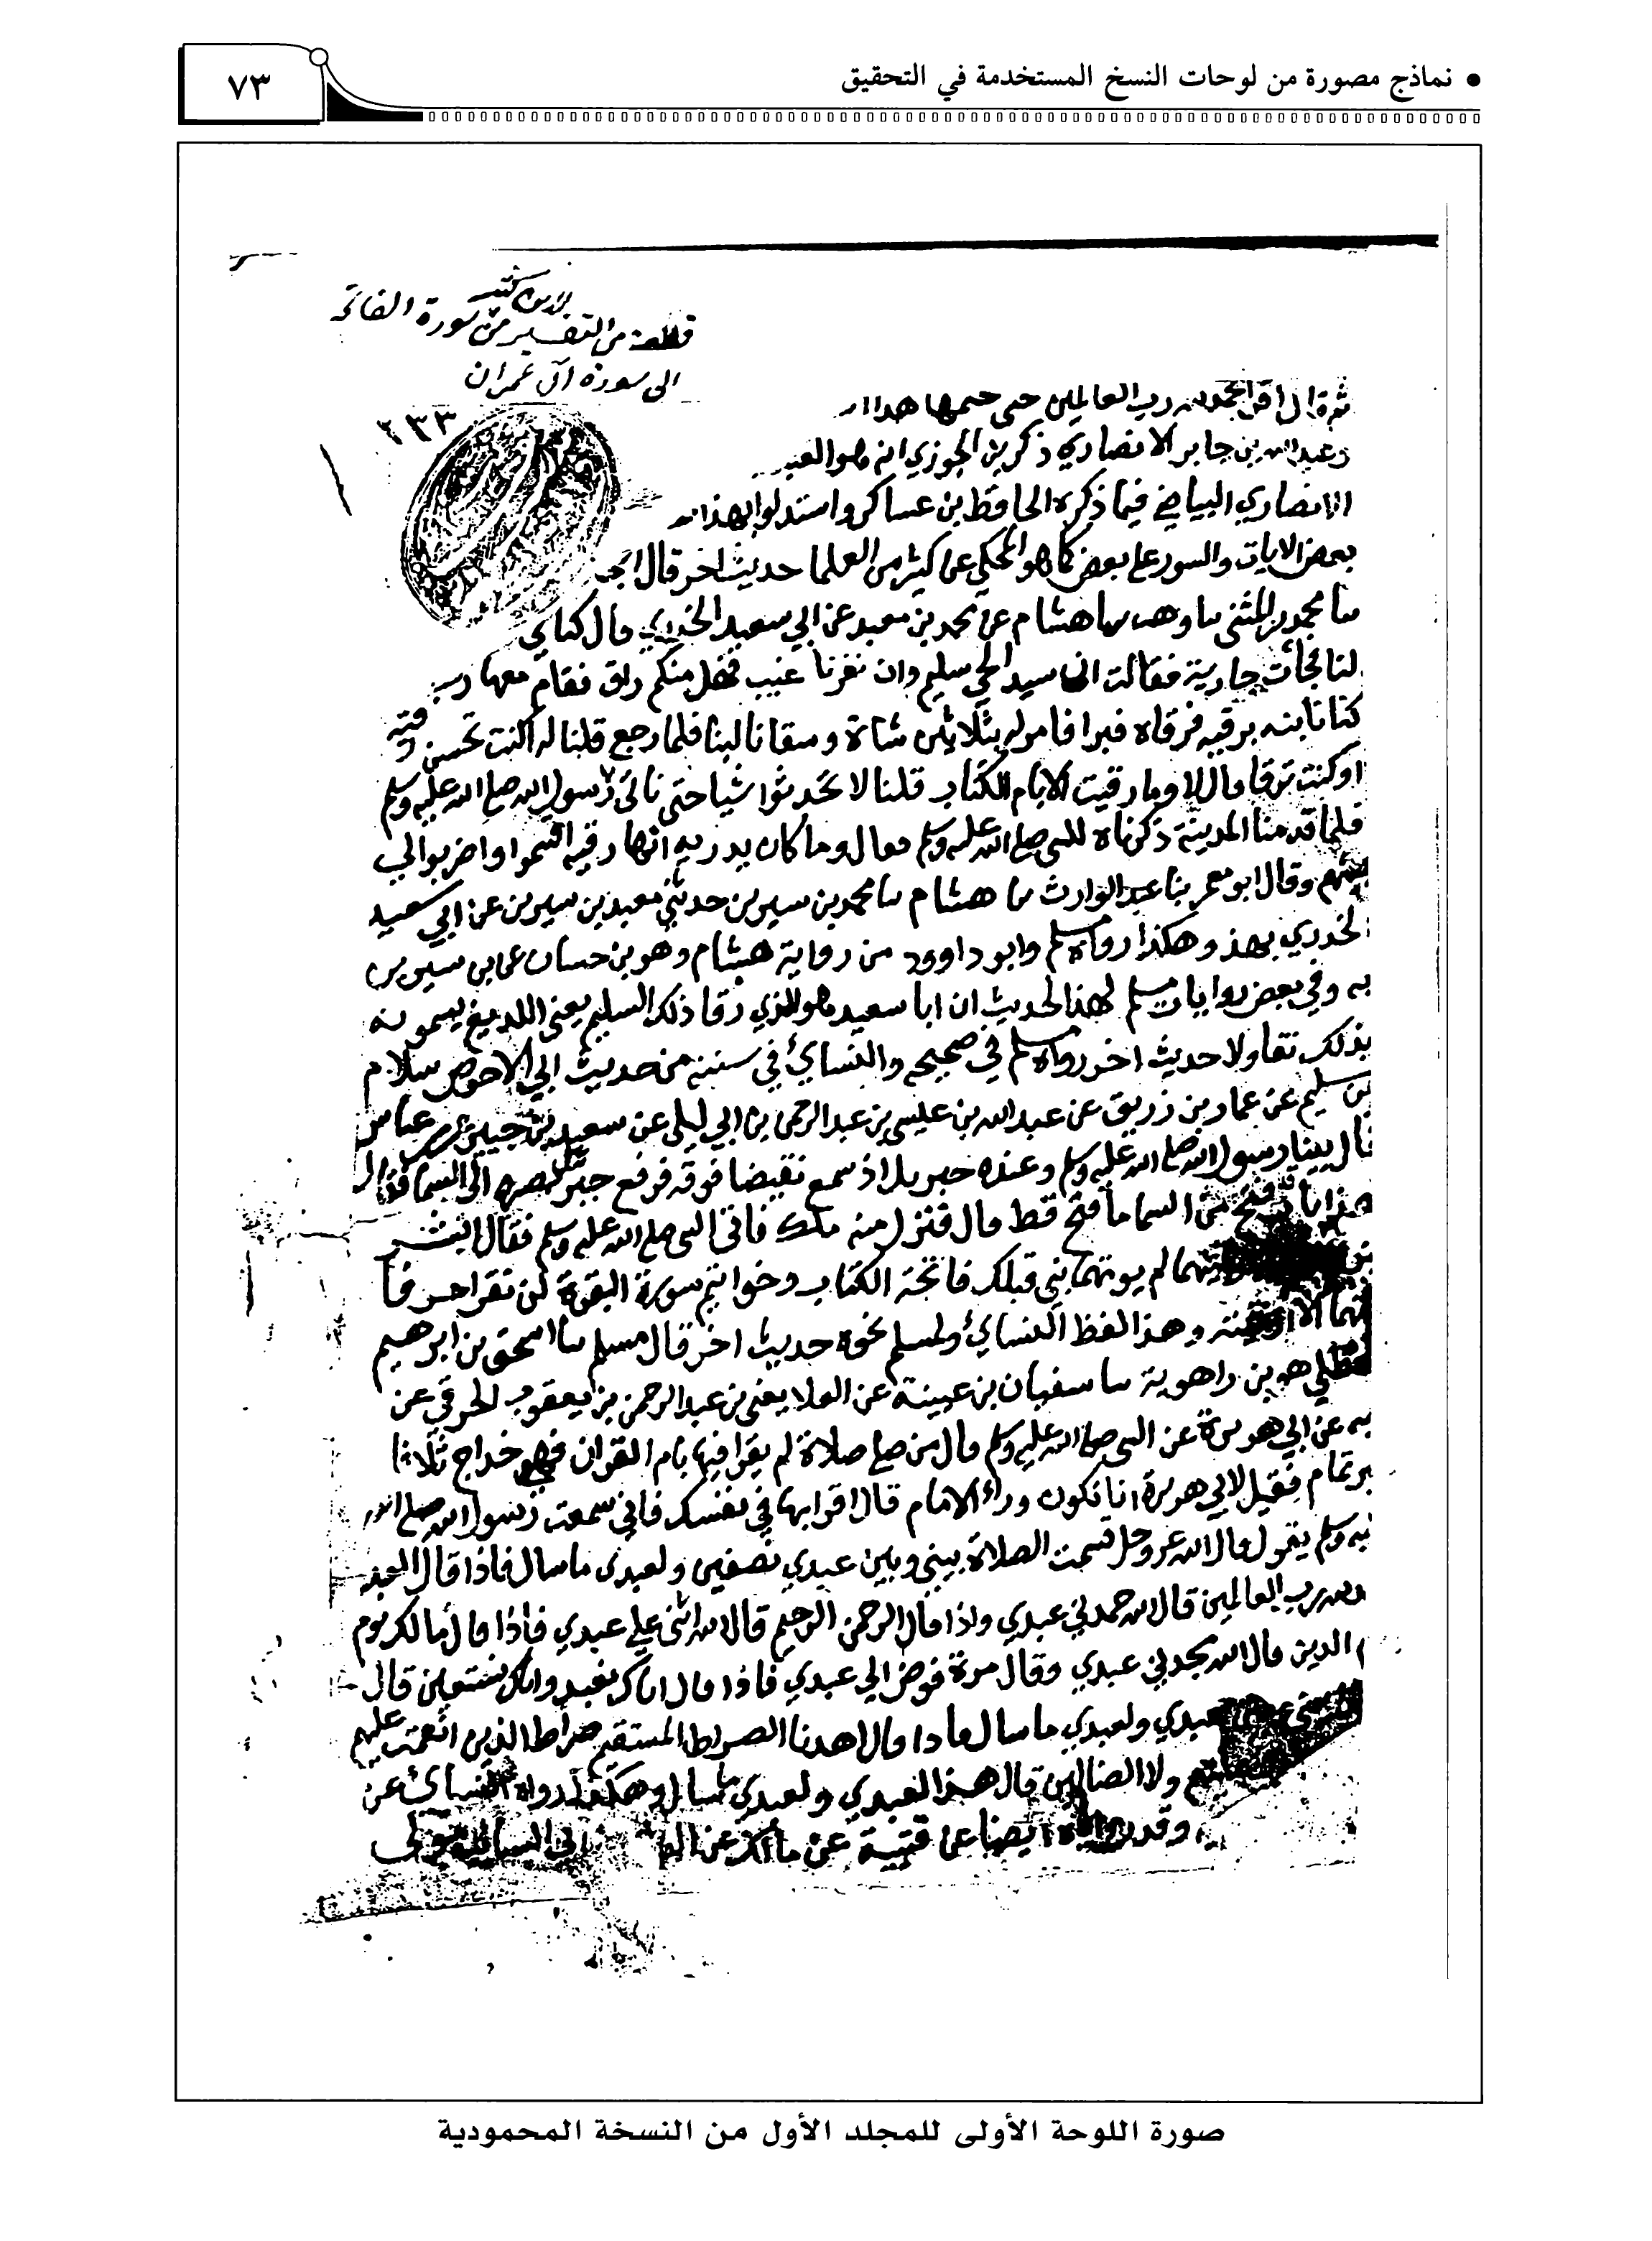 نماذج مصورة من لوحات النسخ المستخدمة في التحقيق
٧٣
لابن كثير
قطعة من التفسير من سورة الفاتحة
الى سورة آل عمران
٢٣٣
اقرا الحمد لله رب العالمين حتى ختمها هدا
وعبدالله بن جابر الانصاري ذكر بن الجوزي انه هو العبد
الانصاري البياضي فيما ذكره الحافظ بن عساكر واستدلوا بهذا
بعض الايات والسور على بعض كما هو المحكي عن كثير من العلما حديث اخر قال
سا محمد بن المثنى سا وهب سا هشام عن محمد بن معبد عن ابي سعيد الخدري قال كنا في
لنا فجأت جارية فقالت ان سيد الحي سليم وان نفرنا غيب فهل منكم راق فقام معها رجل
كنا نابنه برقيه فرقاه فبرا فامر له بثلاثين شاة وسقانا لبنا فلما رجع قلنا له اكنت تحسن رقيه
او كنت ترقا قال لا وما رقيت الا بام الكتاب قلنا لا تحدثوا شيا حتى ناتي رسول الله صلى الله عليه وسلم
فلما قدمنا المدينة ذكرناه للنبي صلى الله عليه وسلم فقال وما كان يدريه انها رقيه اقسموا واضربوا لي
بسهم وقال ابو معمر بنا عبد الوارث سا هشام سا محمد بن سيرين حدثني معبد بن سيرين عن ابي سعيد
الخدري بهذ وهكذا رواه مسلم وابو داوود من رواية هشام وهو بن حسان عن بن سيرين
به وفي بعض روايات مسلم لهذا الحديث ان ابا سعيد هو الذي رقا ذلك السليم يعني اللديغ يسمونه
بذلك تفاولا حديث اخر رواه مسلم في صحيحه والنسائي في سننه من حديث ابي الاحوص سلام
بن سليم عن عمار بن زريق عن عبد الله بن عليسى بن عبد الرحمن بن ابي ليلى عن سعيد بن جبير عن بن عباس
قال بينا رسول الله صلى الله عليه وسلم وعنده جبريل اذ سمع نقيضا فوقه فرفع جبريل بصره الى السما فقال
هذا باب قد فتح من السما ما فتح قط قال فنزل منه ملك فاتى النبي صلى الله عليه وسلم فقال ابشر
لم يوتهما نبي قبلك فاتحة الكتاب وخواتيم سورة البقرة لن تقرا حرفا
منهما الا اوتيته وهذا لفظ النسائي ولمسلم نحوه حديث اخر قال مسلم سا اسحق بن ابرهيم
الحنظلي هو بن راهوية سا سفيان بن عيينة عن العلا يعني بن عبد الرحمن بن يعقوب الحرقي عن
ابيه عن ابي هريرة عن النبي صلى الله عليه وسلم قال من صلى صلاة لم يقرا فيها بام القران فهي خداج ثلاثا
غير تمام فقيل لابي هريرة انا نكون وراء الامام قال اقرا بها في نفسك فاني سمعت رسول الله صلى الله
عليه وسلم يقول قال الله عز وجل قسمت الصلاة بيني وبين عبدي نصفين ولعبدى ما سال فاذا قال العبد
الحمد لله رب العالمين قال الله حمدني عبدي واذا قال الرحمن الرحيم قال الله اثنى علي عبدي فاذا قال مالك يوم
الدين قال الله مجدني عبدي وقال مرة فوض الي عبدي فاذا قال اياك نعبد واياك نستعين قال
هذا بيني وبين عبدي ولعبدي ما سال فاذا قال اهدنا الصراط المستقيم صراط الذين انعمت عليهم
ولا الضالين قال هذا لعبدي ولعبدي ما سال وهكذا رواه النسائي عن
وقد رواه ايضا عن قتيبة عن مالك عن العلا ابي السائب مولى
صورة اللوحة الأولى للمجلد الأول من النسخة المحمودية